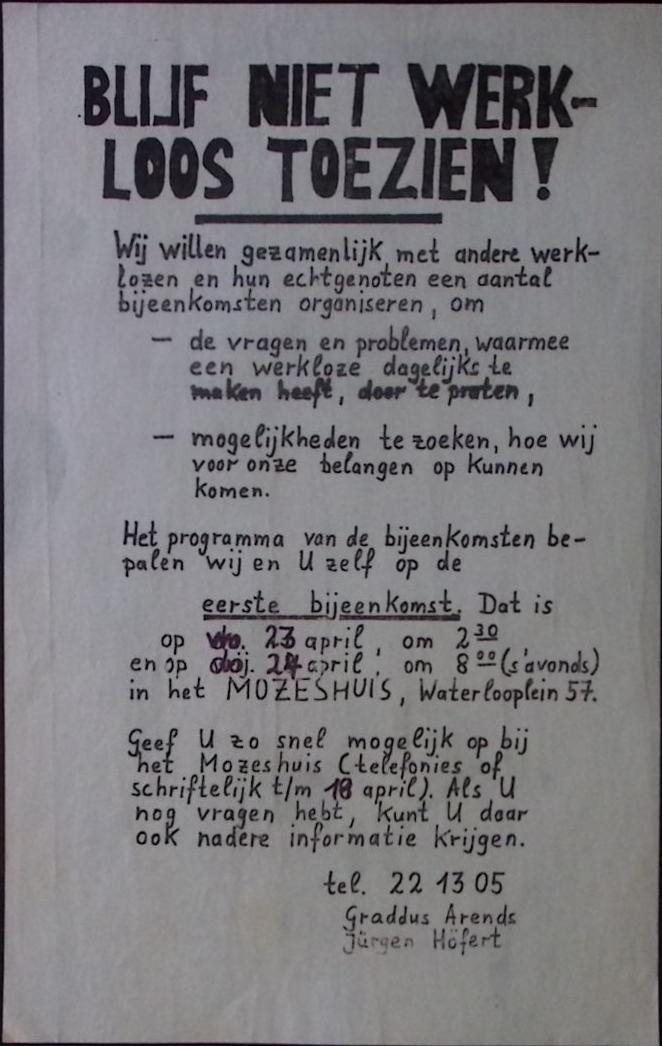 BLIJF NIET WERK-
LOOS TOEZIEN!
Wij willen gezamenlijk met andere werk-
lozen en hun echtgenoten een aantal
bijeenkomsten organiseren, om
— de vragen en problemen, waarmee
een werkloze dagelijks te
maken heeft, door te praten,
— mogelijkheden te zoeken, hoe wij
voor onze belangen op kunnen
komen.
Het programma van de bijeenkomsten be-
palen wij en U zelf op de
eerste bijeenkomst. Dat is
op 23 april, om 2 30
en op 24 april, om 8 00 (s'avonds)
in het MOZESHUIS, Waterlooplein 57.
Geef U zo snel mogelijk op bij
het Mozeshuis (telefonies of
schriftelijk t/m 18 april). Als U
nog vragen hebt, kunt U daar
ook nadere informatie krijgen.
tel. 22 13 05
Graddus Arends
Jürgen Höfert